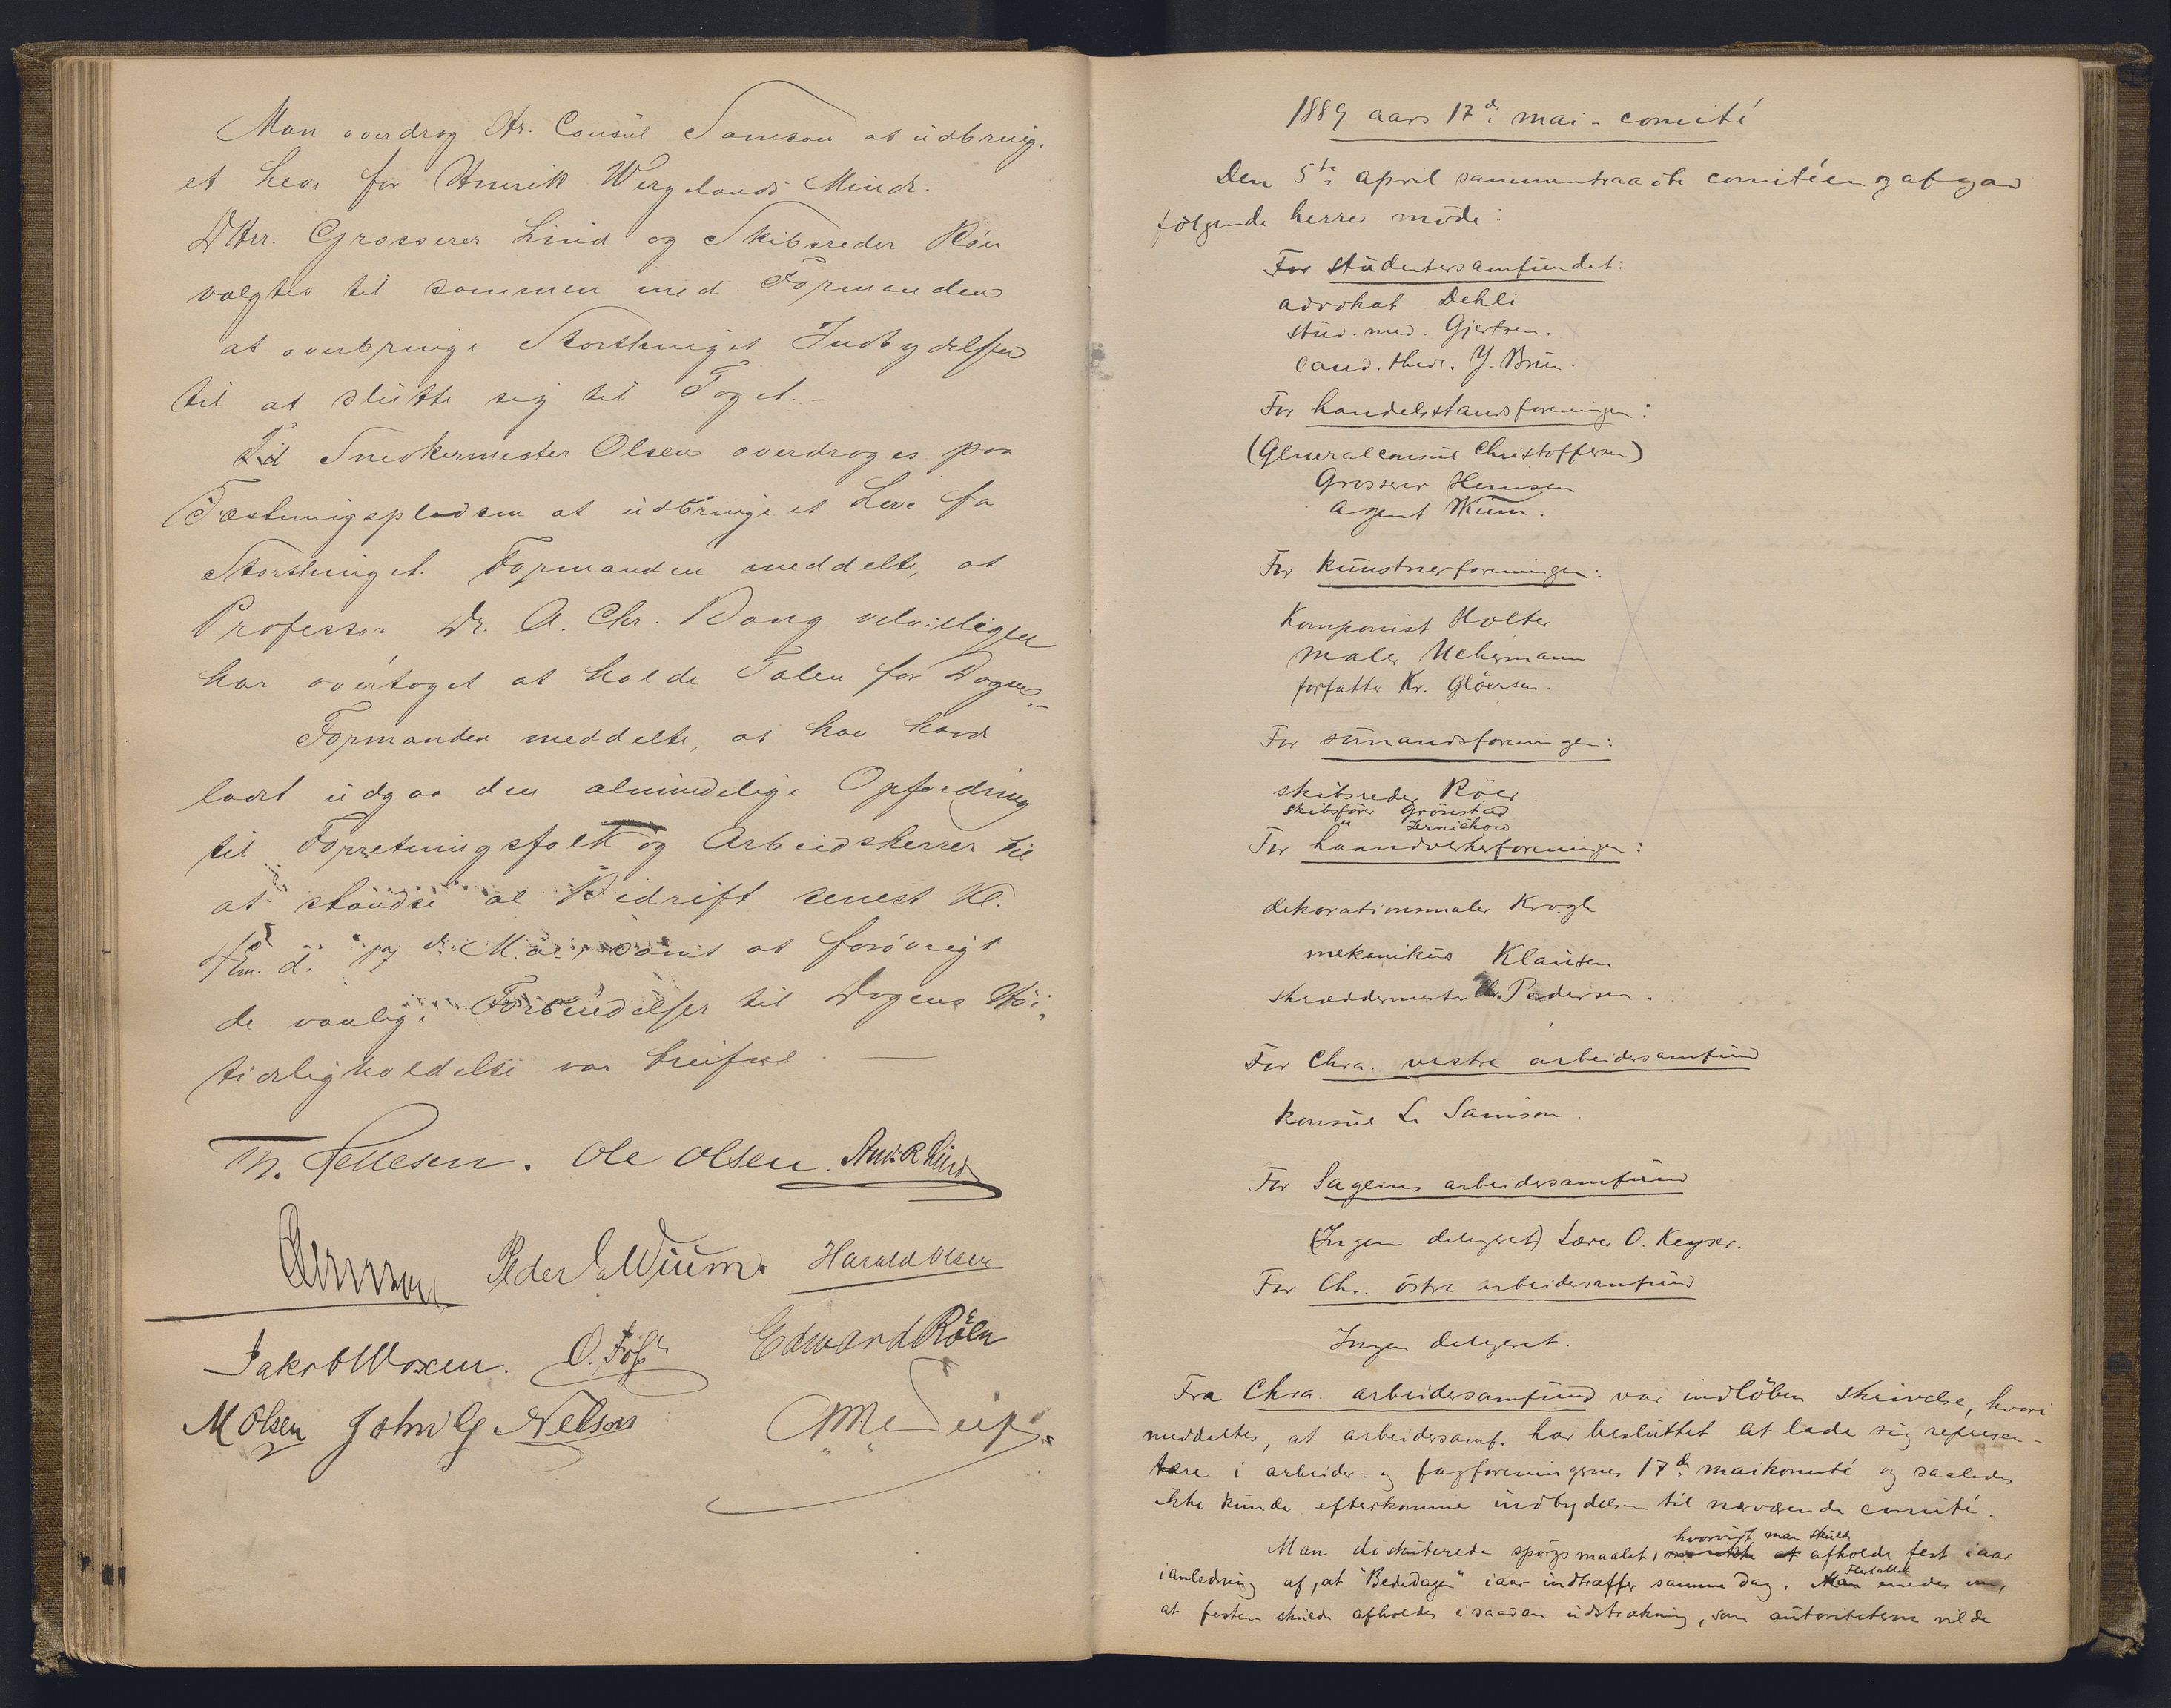 Man overdrog Hr. Consul Samson at udbring.
et Leve for Henrik Wergelands Minde.
DHrr. Grosserer Lind og Skibsreder Röer
valgtes til sammen med Formanden
at overbringe Storthinget Indbydelsen
til at slutte sig til Toget. –
Til Snedkermester Olsen overdroges paa
Fæstningspladsen at udbringe et Leve for
Storthinget. Formanden meddelte, at
Professor Dr. A. Chr. Bang velvilligen
har overtaget at holde Talen for Dagen. –
Formanden meddelte, at han havde
ladet udgaa den almindelige Opfordring
til Forretningsfolk og Arbeidsherrer til
at standse al Bedrift senest Kl.
4 Em. d. 17 de Mai, samt at forövrigt
de vanlige Forbindelser til Dagens Höi-
tideligholdelse var truffet. —
Th. Hellesen. Ole Olsen. Andr. R Lind
Peder Wium. Harald Olsen
Jakob Woxen. O. Foss Edward Röer
M Olsen John G Nelson
1889 aars 17de mai-comité
Den 5te april sammentraadte comitéen og afgav
følgende herrer møde:
For studentersamfundet:
advokat Dehli
stud. med. Gjertsen.
cand. theol. Y. Brun.
For handelsstandsforeningen:
(Generalconsul Christoffersen)
Grosserer Hemsen
Agent Wium.
For kunstnerforeningen:
Komponist Holter
maler Uchermann
forfatter Kr. Glöersen.
For sømandsforeningen:
skibsreder Röer
skibsfører Grønstad
" Jernichow
For haandverkerforeningen:
dekorationsmaler Krogh
mekanikus Klausen
skræddermester Chr. Pedersen.
For Chra. vestre arbeidersamfund
konsul L. Samson.
For Sagenes arbeidersamfund
(Ingen delegeret) Lærer O. Keyser.
For Chr. östre arbeidersamfund
Ingen delegeret.
Fra Chra. arbeidersamfund var indløben skrivelse, hvori
meddeltes, at arbeidersamf. har besluttet at lade sig represen-
tere i arbeider- og fagforeningernes 17de maikomité og saaledes
ikke kunde efterkomme indbydelsen til nærværende comité.
hvorvidt man skulde
Man diskuterede spørgsmaalet, at afholde fest iaar
ianledning af, at "Bededagen" iaar indtræffer samme dag. Man Flertallet enedes om,
at festen skulde afholdes i saadan udstrækning, som autoriteterne vilde